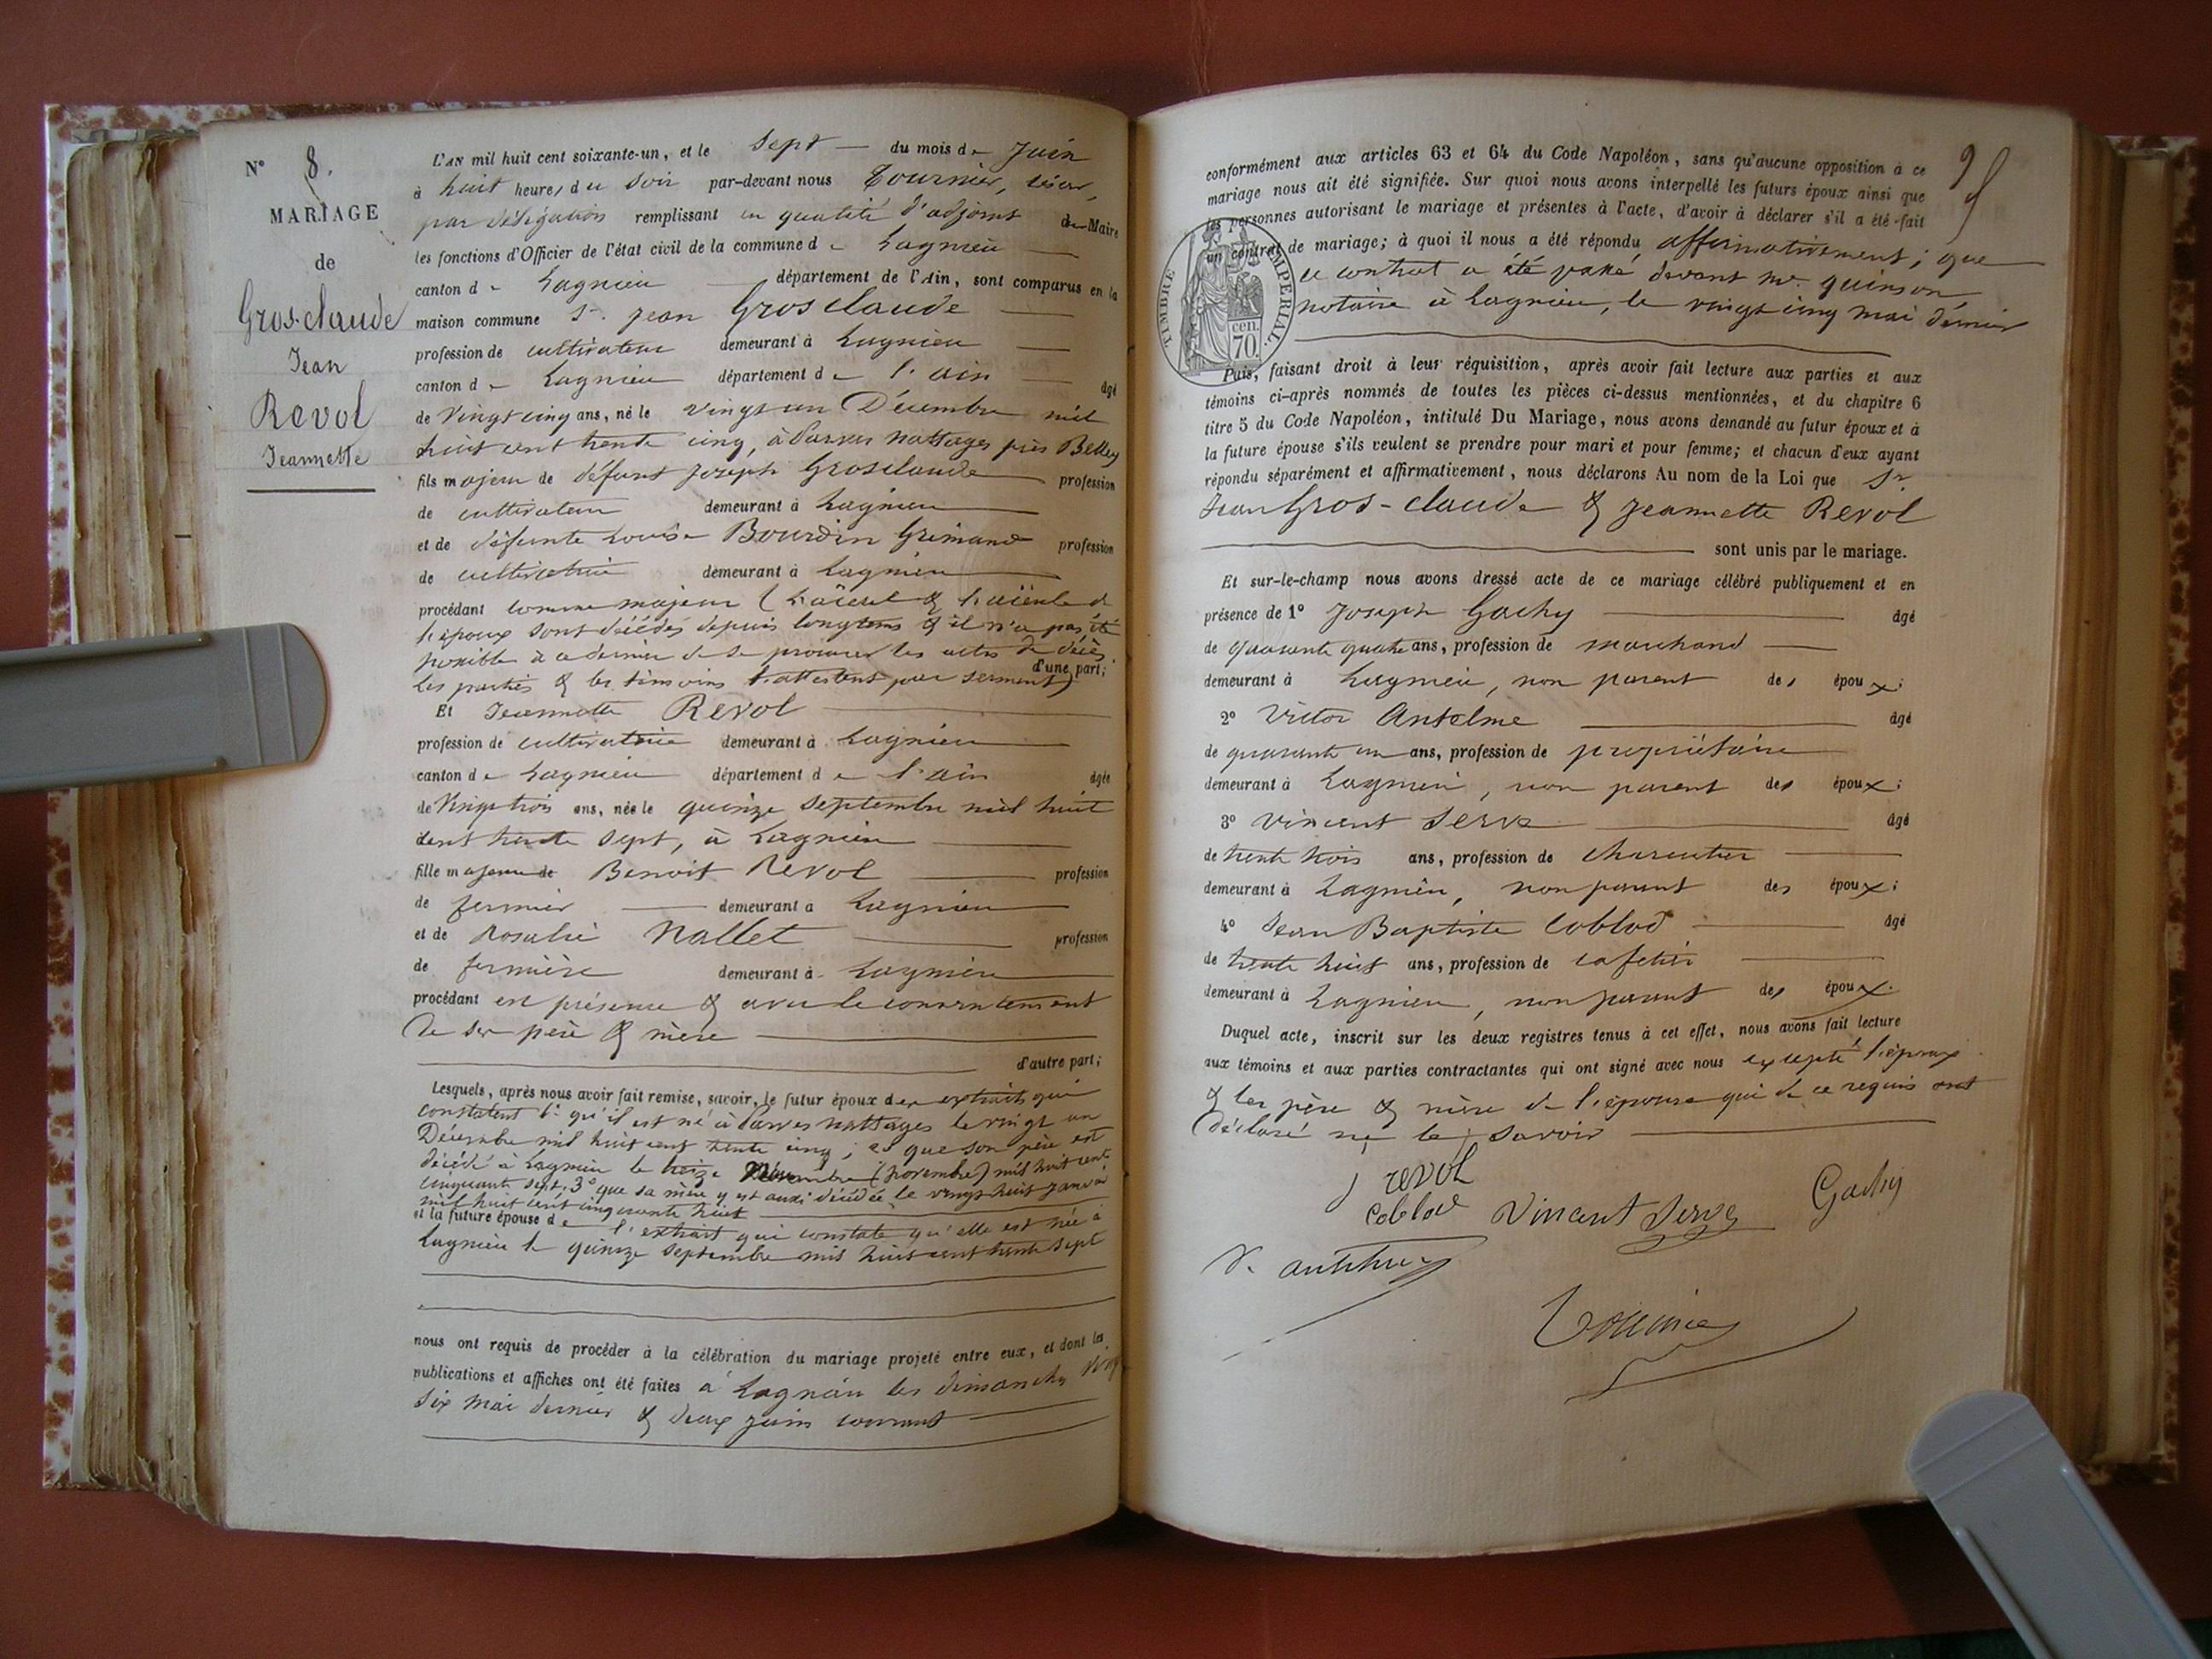 N° 8.
MARIAGE
de
Gros-claude
Jean
Revol
Jeannette
L'AN mil huit cent soixante-un, et le sept du mois de Juin
à huit heures du soir par-devant nous Tournier, César,
par délégation remplissant en qualité d'adjoint du Maire
les fonctions d'Officier de l'état civil de la commune de Lagnieu
canton de Lagnieu département de l'Ain, sont comparus en la
maison commune Sr. Jean Grosclaude
profession de cultivateur demeurant à Lagnieu
canton de Lagnieu département de l'ain âgé
de Vingt cinq ans, né le vingt un Décembre mil
huit cent trente cinq, à Parves Nattages près Belley
fils majeur de défunt Joseph Grosclaude profession
de cultivateur demeurant à Lagnieu
et de défunte Louise Bourdin Grimand profession
de cultivatrice demeurant à Lagnieu
procédant comme majeur (L'aïeul & l'aïeule de
l'époux sont décédés depuis longtems & il n'a pas été
possible à ce dernier de se procurer les actes de décès
Les parties & les témoins l'attestent par serment) d'une part;
Et Jeannette Revol
profession de cultivatrice demeurant à Lagnieu
canton de Lagnieu département de l'ain âgée
de Vingt trois ans, née le quinze septembre mil huit
cent trente sept, à Lagnieu
fille majeure de Benoit Revol profession
de fermier demeurant à Lagnieu
et de Rosalie Nallet profession
de fermière demeurant à Lagnieu
procédant en présence & avec le consentement
de ses père & mère
d'autre part;
Lesquels, après nous avoir fait remise, savoir, le futur époux des extraits qui
constatent 1° qu'il est né à Parves Nattages le vingt un
Décembre mil huit cent trente cinq; 2° que son père est
décédé à Lagnieu le treize Novembre (novembre) mil huit cent
cinquante sept, 3° que sa mère y est aussi décédée le vingt huit janvier
mil huit cent cinquante huit
et la future épouse de l'extrait qui constate qu'elle est née à
Lagnieu le quinze septembre mil huit cent trente sept
nous ont requis de procéder à la célébration du mariage projeté entre eux, et dont les
publications et affiches ont été faites à Lagnieu les dimanches vingt
six mai dernier & deux juin courant
9
conformément aux articles 63 et 64 du Code Napoléon, sans qu'aucune opposition à ce
mariage nous ait été signifiée. Sur quoi nous avons interpellé les futurs époux ainsi que
les personnes autorisant le mariage et présentes à l'acte, d'avoir à déclarer s'il a été fait
un contrat de mariage; à quoi il nous a été répondu affirmativement; que
ce contrat a été passé devant Me. Quinson,
notaire à Lagnieu, le vingt cinq mai dernier
TIMBRE IMPERIAL.
cen.
70.
Puis, faisant droit à leur réquisition, après avoir fait lecture aux parties et aux
témoins ci-après nommés de toutes les pièces ci-dessus mentionnées, et du chapitre 6
titre 5 du Code Napoléon, intitulé Du Mariage, nous avons demandé au futur époux et à
la future épouse s'ils veulent se prendre pour mari et pour femme; et chacun d'eux ayant
répondu séparément et affirmativement, nous déclarons Au nom de la Loi que Sr.
Jean Gros-claude & Jeannette Revol
sont unis par le mariage.
Et sur-le-champ nous avons dressé acte de ce mariage célébré publiquement et en
présence de 1° Joseph Gachy âgé
de quarante quatre ans, profession de marchand
demeurant à Lagnieu, non parent des époux;
2° Victor Antelme âgé
de quarante un ans, profession de propriétaire
demeurant à Lagnieu, non parent des époux;
3° Vincent Serve âgé
de trente trois ans, profession de charcutier
demeurant à Lagnieu, non parent des époux;
4° Jean Baptiste Coblod âgé
de trente huit ans, profession de cafetier
demeurant à Lagnieu, non parent des époux.
Duquel acte, inscrit sur les deux registres tenus à cet effet, nous avons fait lecture
aux témoins et aux parties contractantes qui ont signé avec nous excepté l'époux
& les père & mère de l'épouse qui de ce requis ont
déclaré ne le savoir
j revol
Coblod Vincent Serve Gachy
V. antelme
Tournier